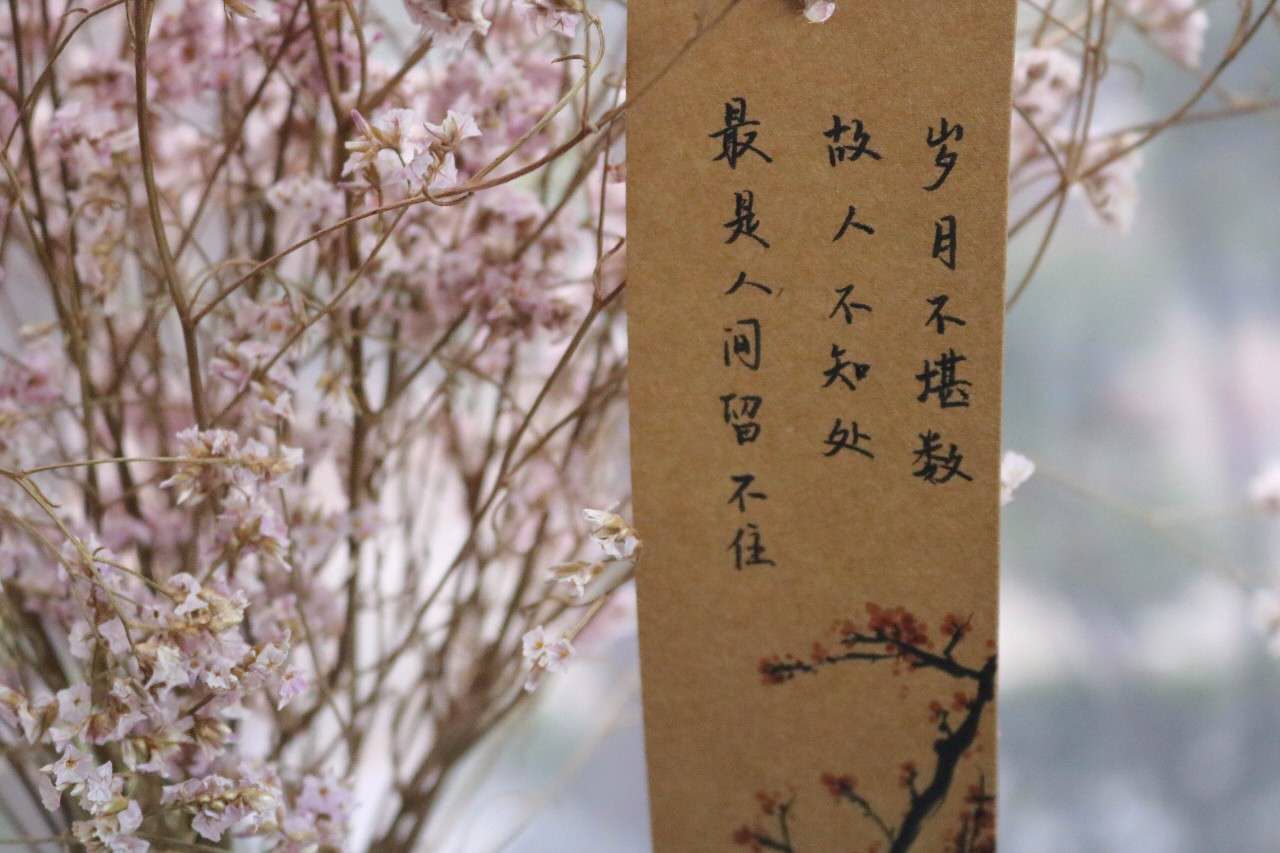 岁月不堪数
故人不知处
最是人间留不住